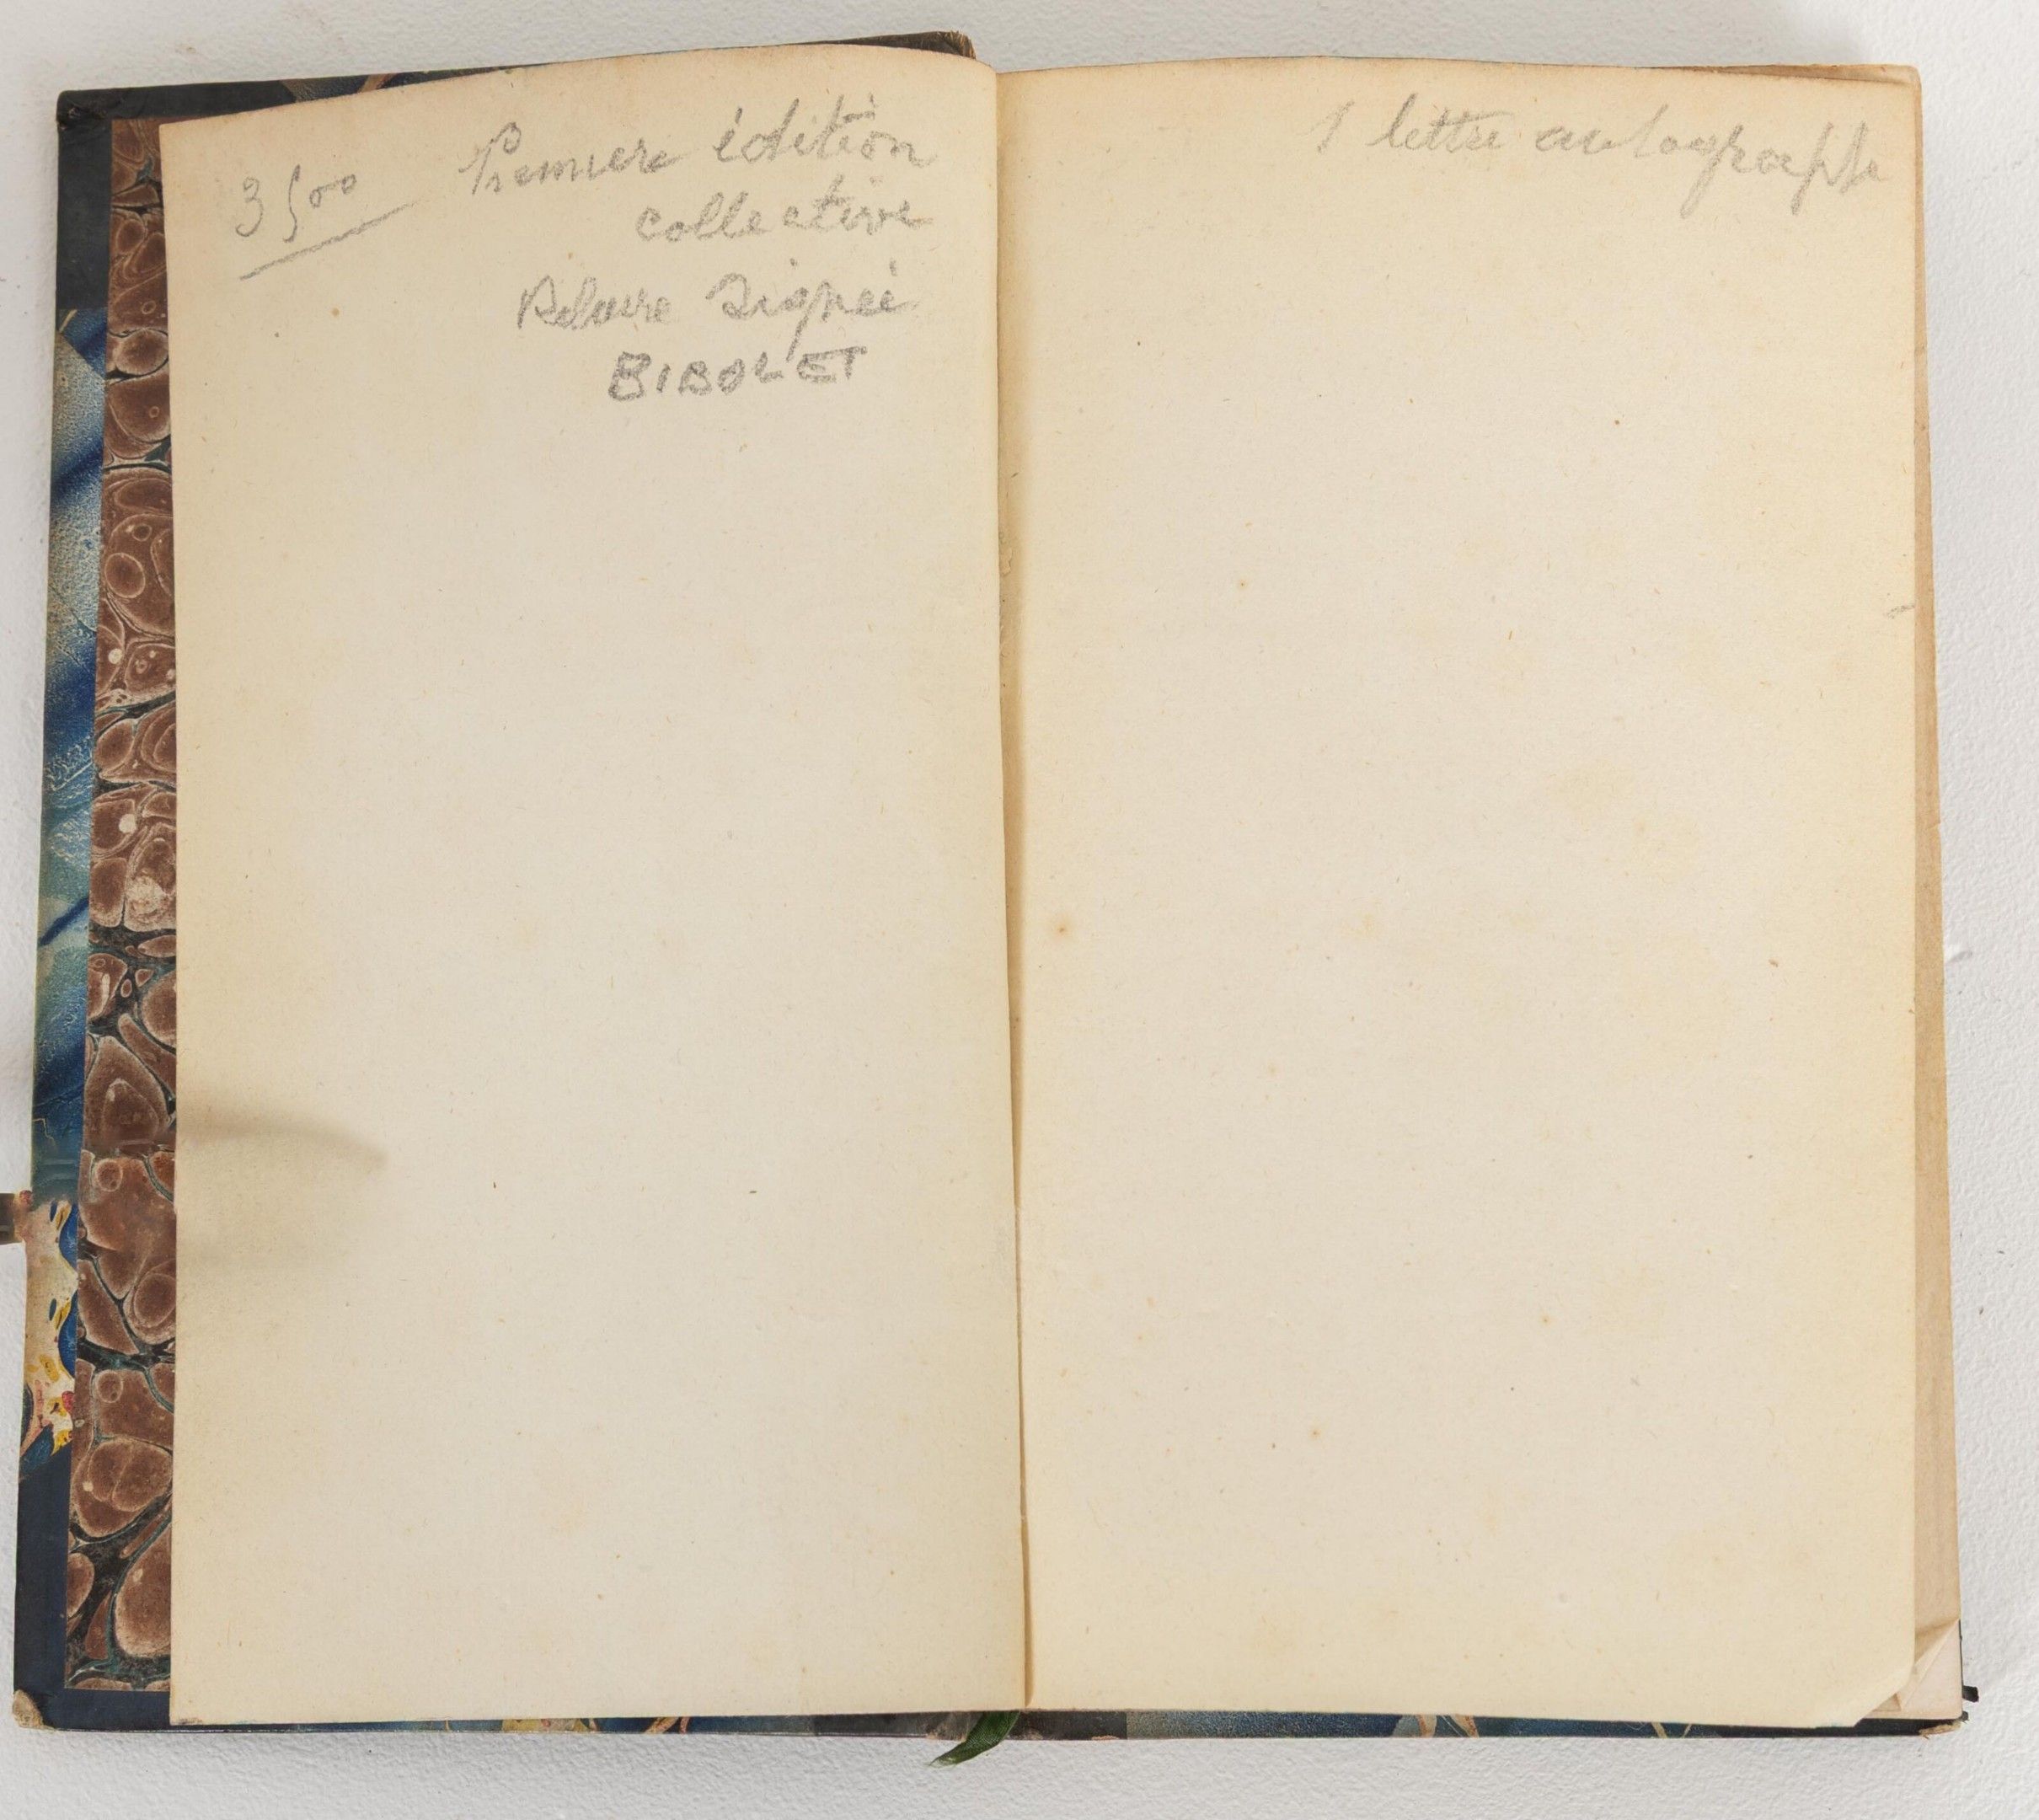 3500
Première édition
collective
Reliure signée
BIBOLET
1 lettre autographe